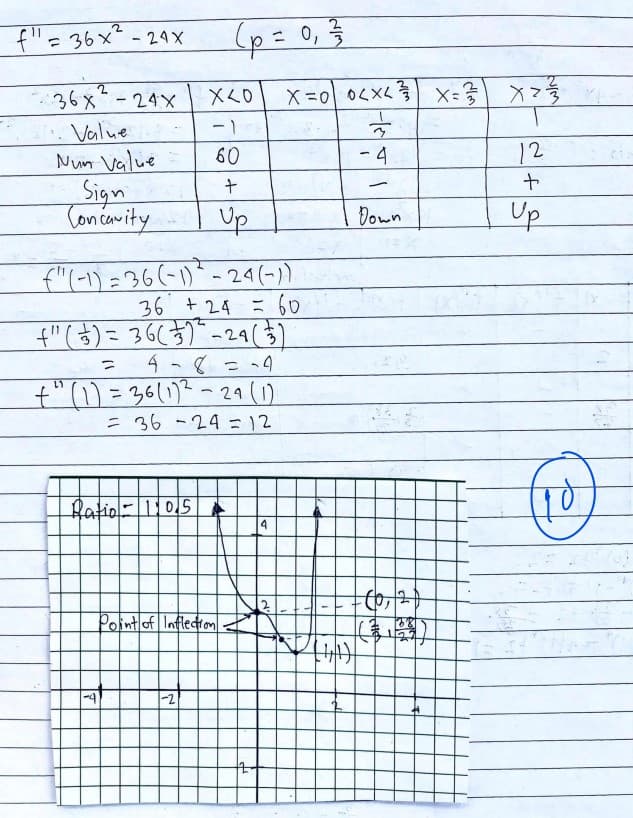 f'' = 36x² - 24x Cp = 0, 2/3
36x² - 24x x<0 x=0 0<x<2/3 x=2/3 x>2/3
Value -1 1/3 1
Num Value 60 -4 12
Sign + - +
Concavity Up Down Up
f''(-1) = 36(-1)² - 24(-1)
36 + 24 = 60
f''(1/3) = 36(1/3)² - 24(1/3)
= 4 - 8 = -4
f''(1) = 36(1)² - 24(1)
= 36 - 24 = 12
10
Ratio = 1:0.5
4
2
(0, 2)
Point of Inflection
(2/3, 38/27)
(1,1)
-4 -2 2 4
2-